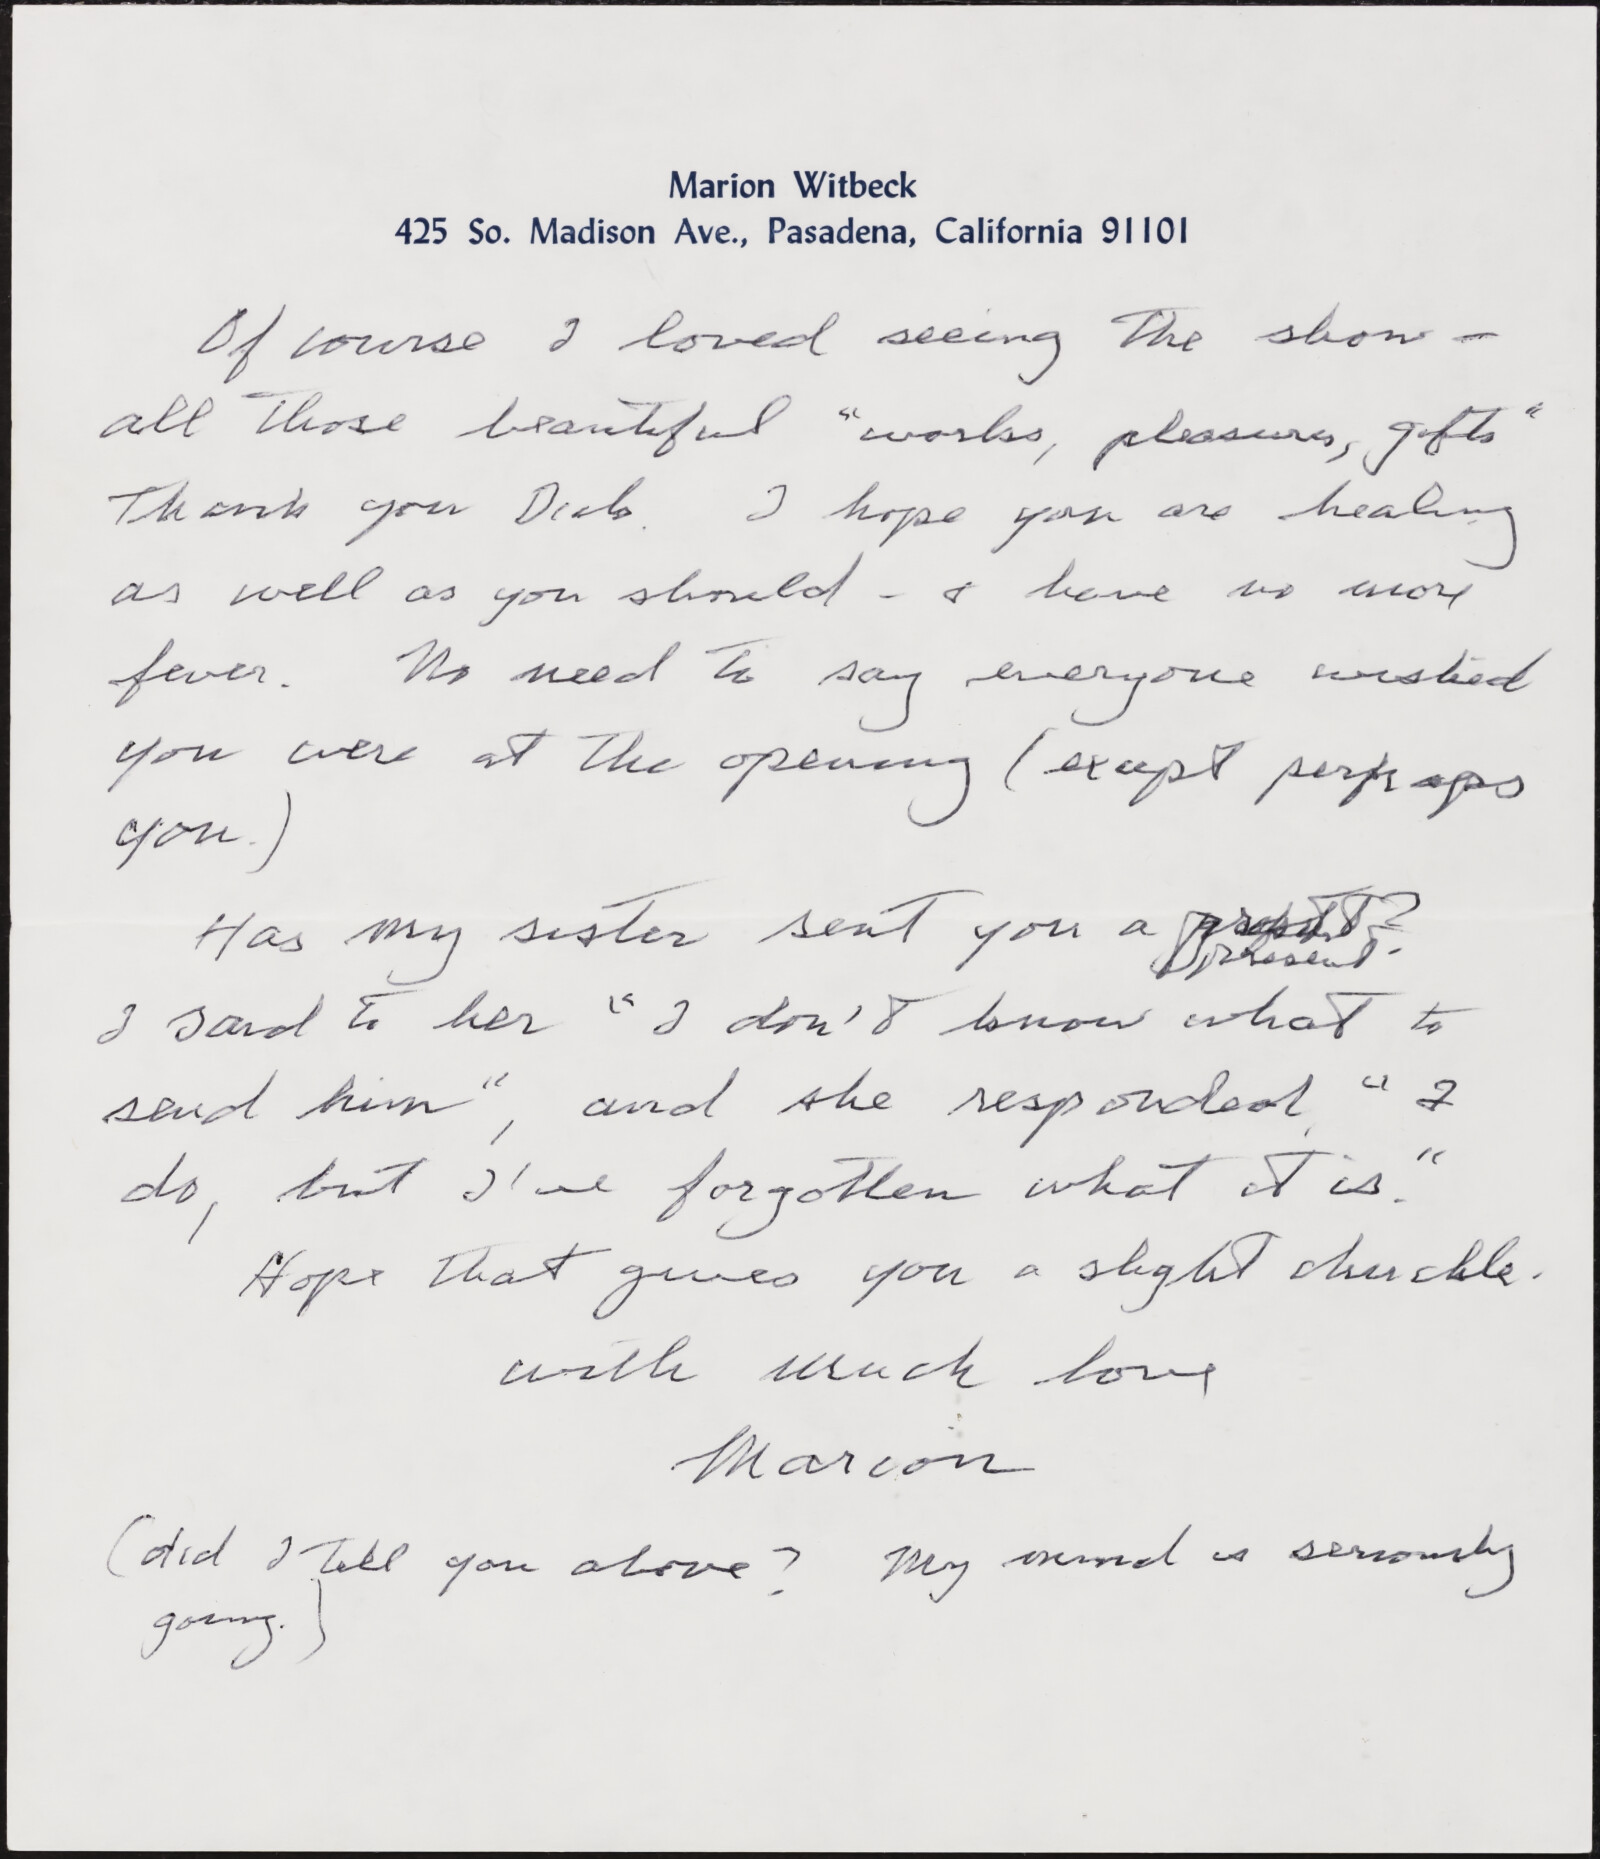 Marion Witbeck
425 So. Madison Ave., Pasadena, California 91101
Of course I loved seeing the show -
all those beautiful "works, pleasures, gifts"
Thank you Dick. I hope you are healing
as well as you should - & have no more
fever. No need to say everyone wished
you were at the opening (except perhaps
you.)
Has my sister sent you a
present?
I said to her "I don't know what to
send him", and she responded, "I
do, but I've forgotten what it is."
Hope that gives you a slight chuckle.
with much love
Marion
(did I tell you above? My mind is seriously
going.)